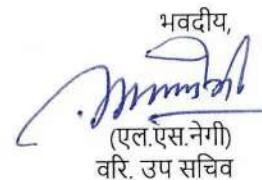 भवदीय,
(एल.एस.नेगी)
वरि. उप सचिव